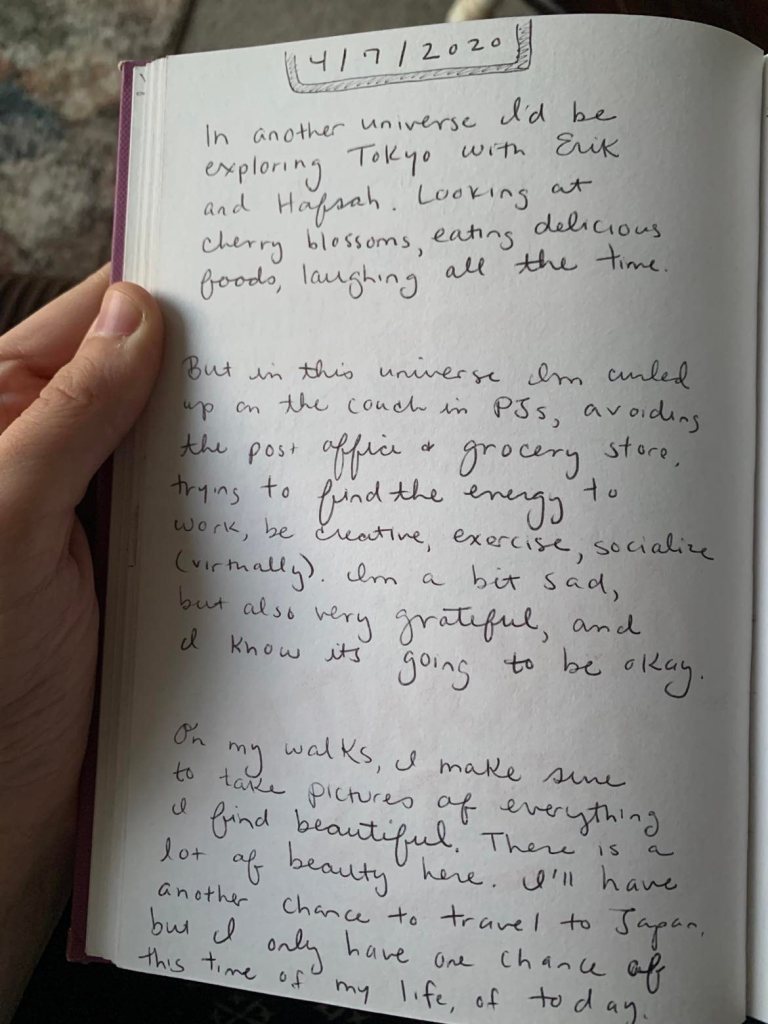 4/7/2020
In another universe I'd be
exploring Tokyo with Erik
and Hafsah. Looking at
cherry blossoms, eating delicious
foods, laughing all the time.
But in this universe Im curled
up on the couch in PJs, avoiding
the post office & grocery store,
trying to find the energy to
work, be creative, exercise, socialize
(virtually). Im a bit sad,
but also very grateful, and
I know its going to be okay.
On my walks, I make sure
to take pictures of everything
I find beautiful. There is a
lot of beauty here. I'll have
another chance to travel to Japan,
but I only have one chance of
this time of my life, of today.